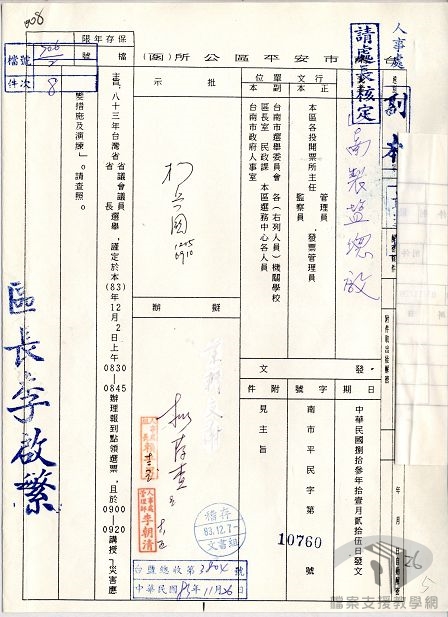 人事處
請處長核定
副本
台南市安平區公所(函)
保存年限
檔號
檔號 706/2
件次 8
行文單位
正本
副本
本區各投開票所主任管理員、監察員、發票管理員
台南市選舉委員會 各(右列人員)機關學校
區長室、民政課 本區選務中心各人員
台南市政府人事室
南製鹽總廠
批示
擬辦
發文
日期
中華民國捌拾參年拾壹月貳拾伍日發文
字號
南市平民字第10760號
附件
見主旨
主旨:八十三年台灣省省議會議員、省長選舉,謹定於本(83)年12月2日上午0830—0845辦理報到點領選票,且於0900—0920講授「災害應
變措施及演練」。請查照。
區長李啟繁
擬存查
人事處管理師李朝清
存檔
83.12.7
文書組
台鹽總收第3804號
中華民國83年11月26日
年 月 日
檔案支援教學網